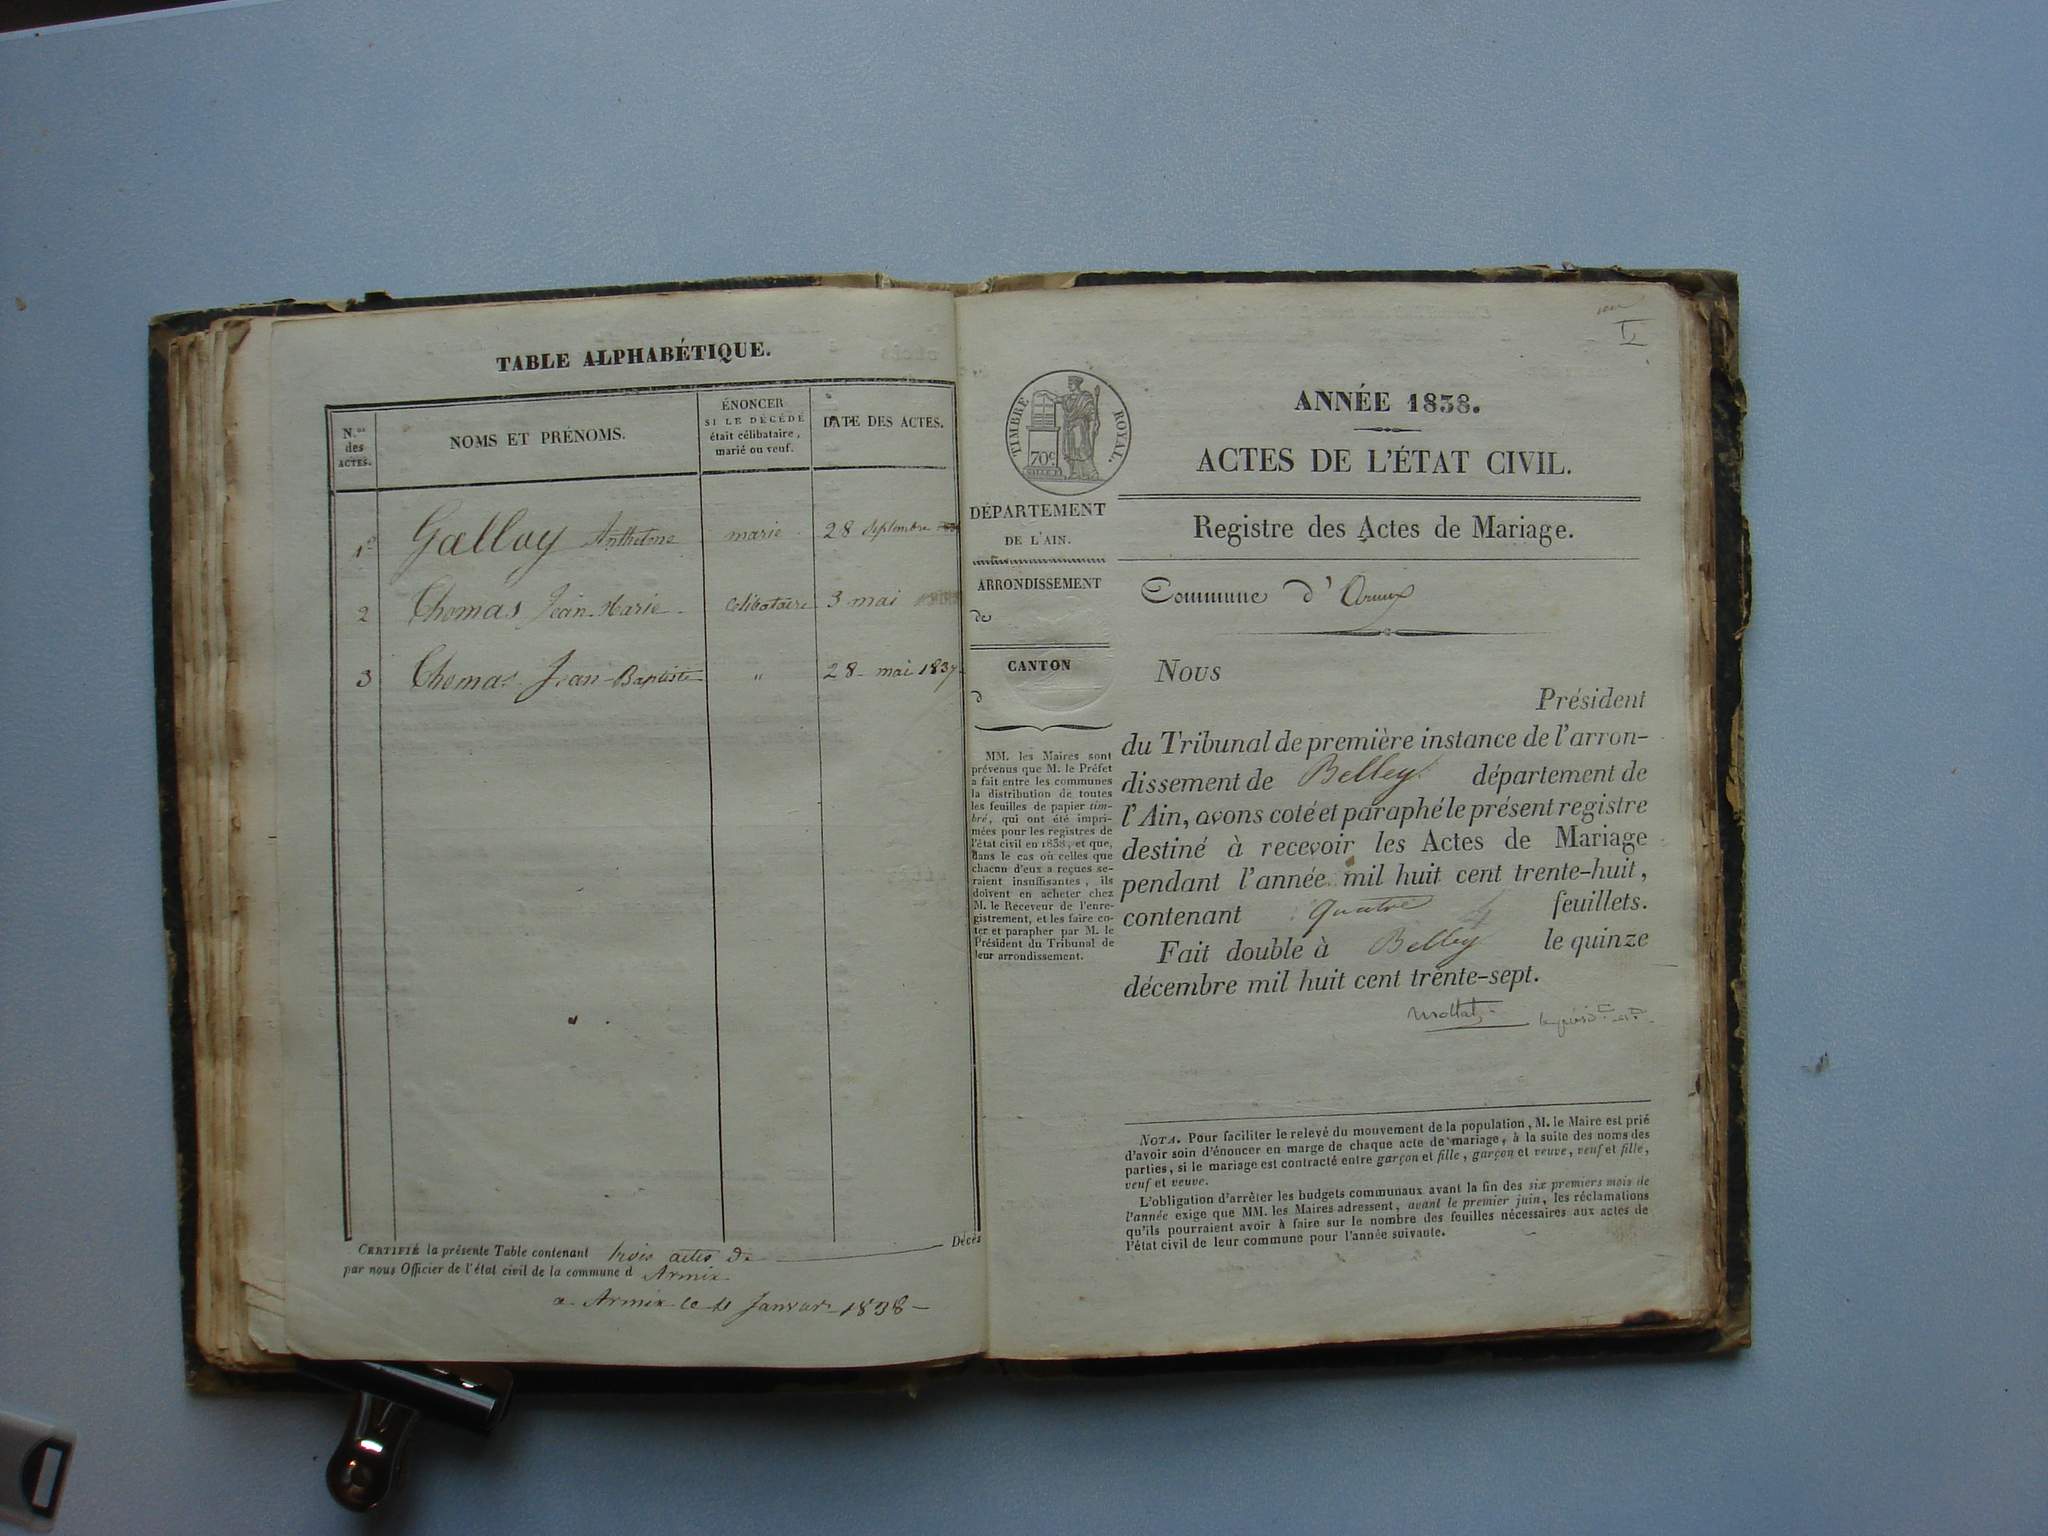 TABLE ALPHABÉTIQUE.
N.os des ACTES.
NOMS ET PRÉNOMS.
ÉNONCER
SI LE DÉCÉDÉ
était célibataire,
marié ou veuf.
DATE DES ACTES.
1º Galloy Anthelme marie 28 septembre
2 Thomas Jean-Marie celibataire 3 mai
3 Thomas Jean-Baptiste " 28 mai 1837
CERTIFIÉ la présente Table contenant trois actes de Décès
par nous Officier de l'état civil de la commune d Armix
a Armix le Janvier 1838
TIMBRE ROYAL.
70c
DÉPARTEMENT
DE L'AIN.
ARRONDISSEMENT
de
CANTON
d
MM. les Maires sont
prévenus que M. le Préfet
a fait entre les communes
la distribution de toutes
les feuilles de papier tim-
bré, qui ont été impri-
mées pour les registres de
l'état civil en 1838, et que,
dans le cas où celles que
chacun d'eux a reçues se-
raient insuffisantes, ils
doivent en acheter chez
M. le Receveur de l'enre-
gistrement, et les faire co-
ter et parapher par M. le
Président du Tribunal de
leur arrondissement.
ANNÉE 1838.
ACTES DE L'ÉTAT CIVIL.
Registre des Actes de Mariage.
Commune d'Armix
Nous
Président
du Tribunal de première instance de l'arron-
dissement de Belley département de
l'Ain, avons coté et paraphé le présent registre
destiné à recevoir les Actes de Mariage
pendant l'année mil huit cent trente-huit,
contenant quatre feuillets.
Fait double à Belley le quinze
décembre mil huit cent trente-sept.
NOTA. Pour faciliter le relevé du mouvement de la population, M. le Maire est prié
d'avoir soin d'énoncer en marge de chaque acte de mariage, à la suite des noms des
parties, si le mariage est contracté entre garçon et fille, garçon et veuve, veuf et fille,
veuf et veuve.
L'obligation d'arrêter les budgets communaux avant la fin des six premiers mois de
l'année exige que MM. les Maires adressent, avant le premier juin, les réclamations
qu'ils pourraient avoir à faire sur le nombre des feuilles nécessaires aux actes de
l'état civil de leur commune pour l'année suivante.